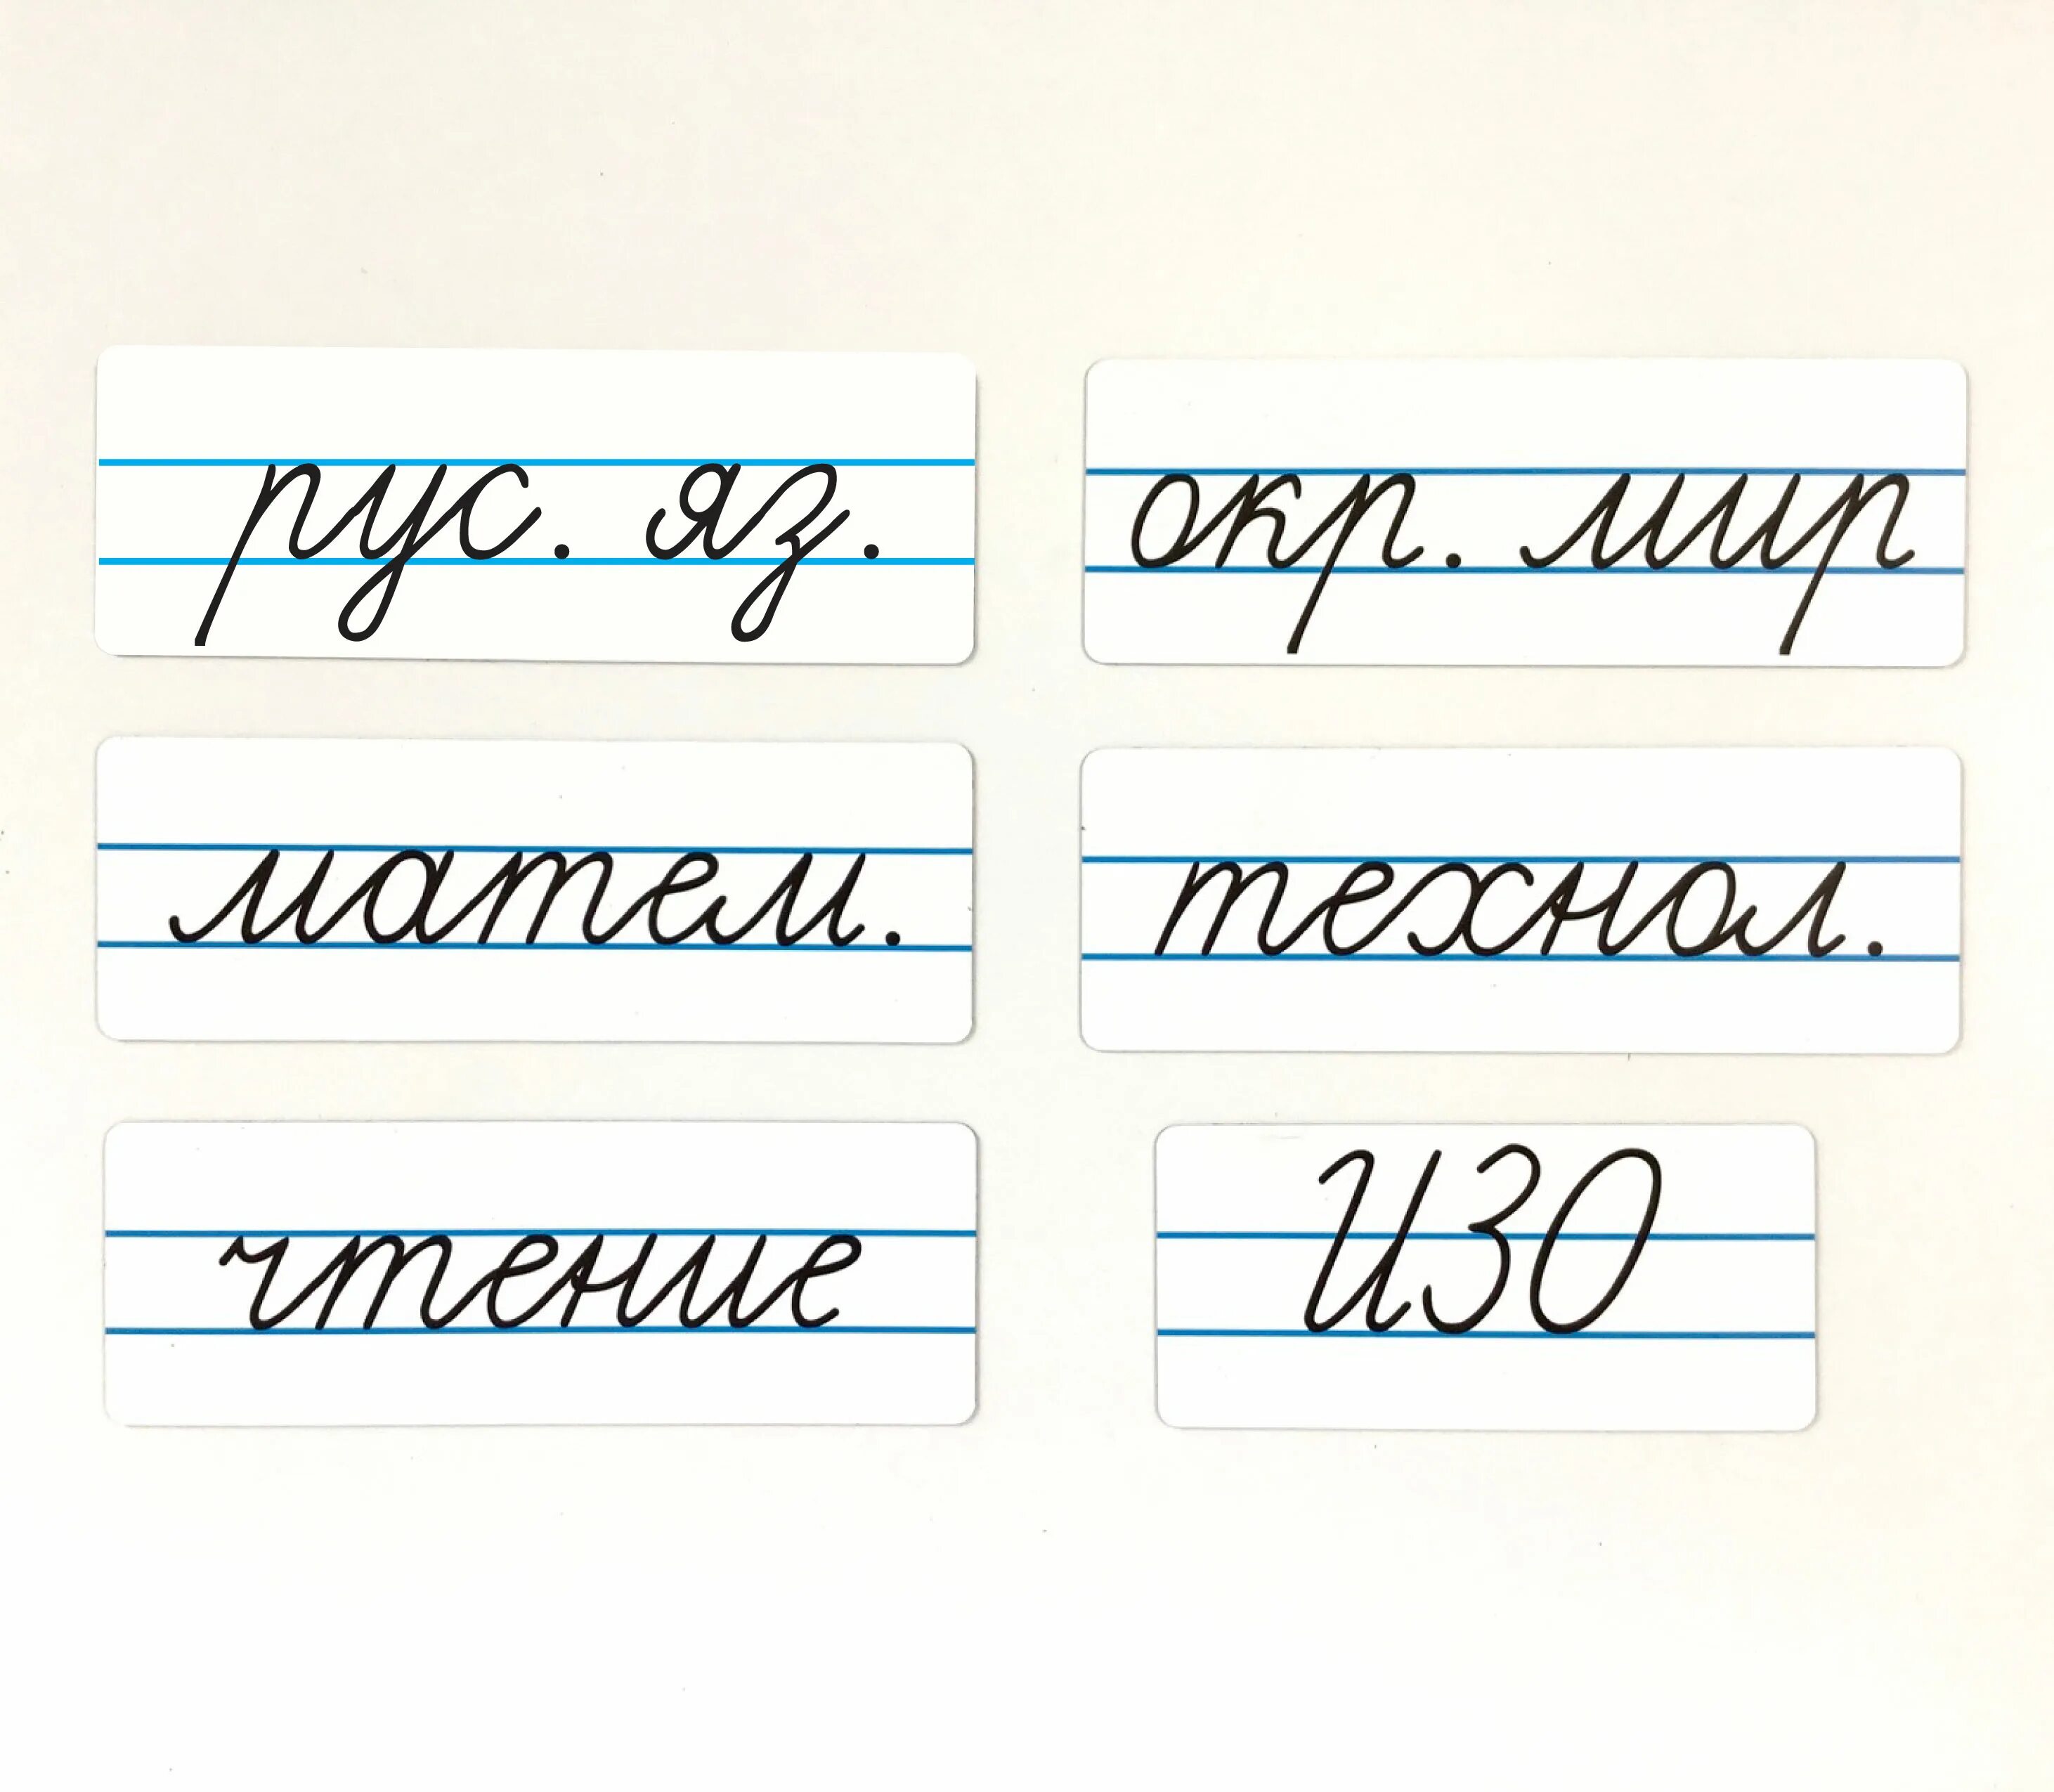 рус. яз.
окр. мир
матем.
технол.
чтение
ИЗО